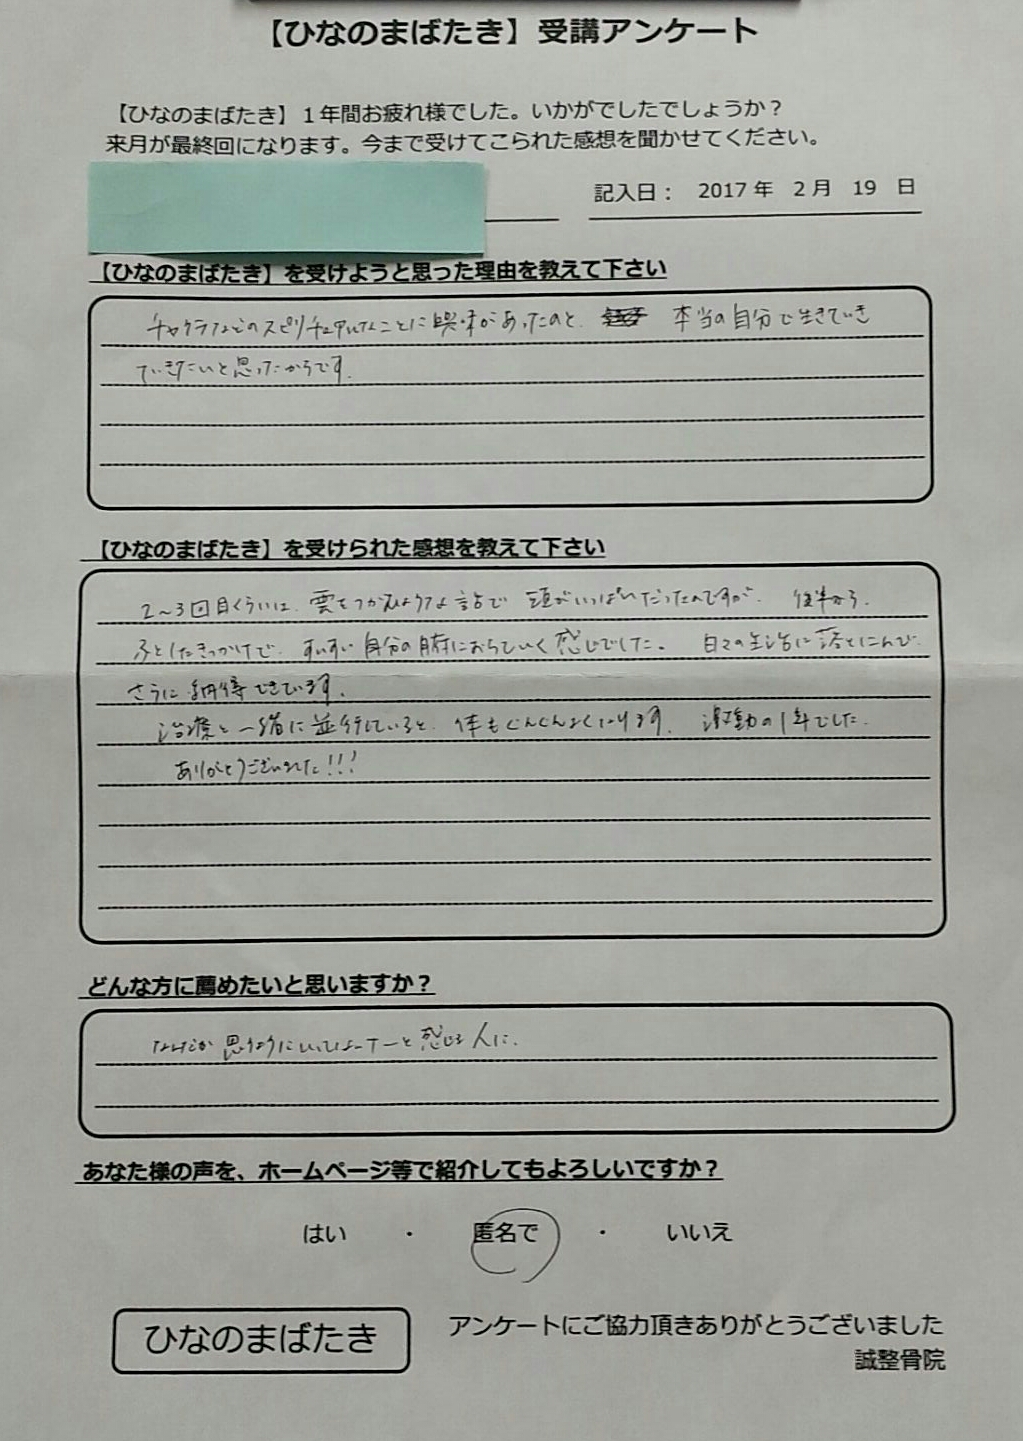 【ひなのまばたき】受講アンケート
【ひなのまばたき】１年間お疲れ様でした。いかがでしたでしょうか？
来月が最終回になります。今まで受けてこられた感想を聞かせてください。
記入日： 2017 年 2 月 19 日
【ひなのまばたき】を受けようと思った理由を教えて下さい
チャクラなどのスピリチュアルなことに興味があったのと、 本当の自分で生きていき
ていきたいと思ったからです。
【ひなのまばたき】を受けられた感想を教えて下さい
2～3回目くらいは、雲をつかむような話で 頭がいっぱいだったのですが、 後半から、
ふとしたきっかけで、すいすい自分の腑におちていく感じでした。 日々の生活に落とし
さらに納得できています。
治療と一緒に並行していると、体もぐんぐんよくなります。 激動の1年でした。
ありがとうございました!!!
どんな方に薦めたいと思いますか？
なんだか思うようにいってないなーと感じる人に。
あなた様の声を、ホームページ等で紹介してもよろしいですか？
はい ・ 匿名で ・ いいえ
ひなのまばたき
アンケートにご協力頂きありがとうございました
誠整骨院